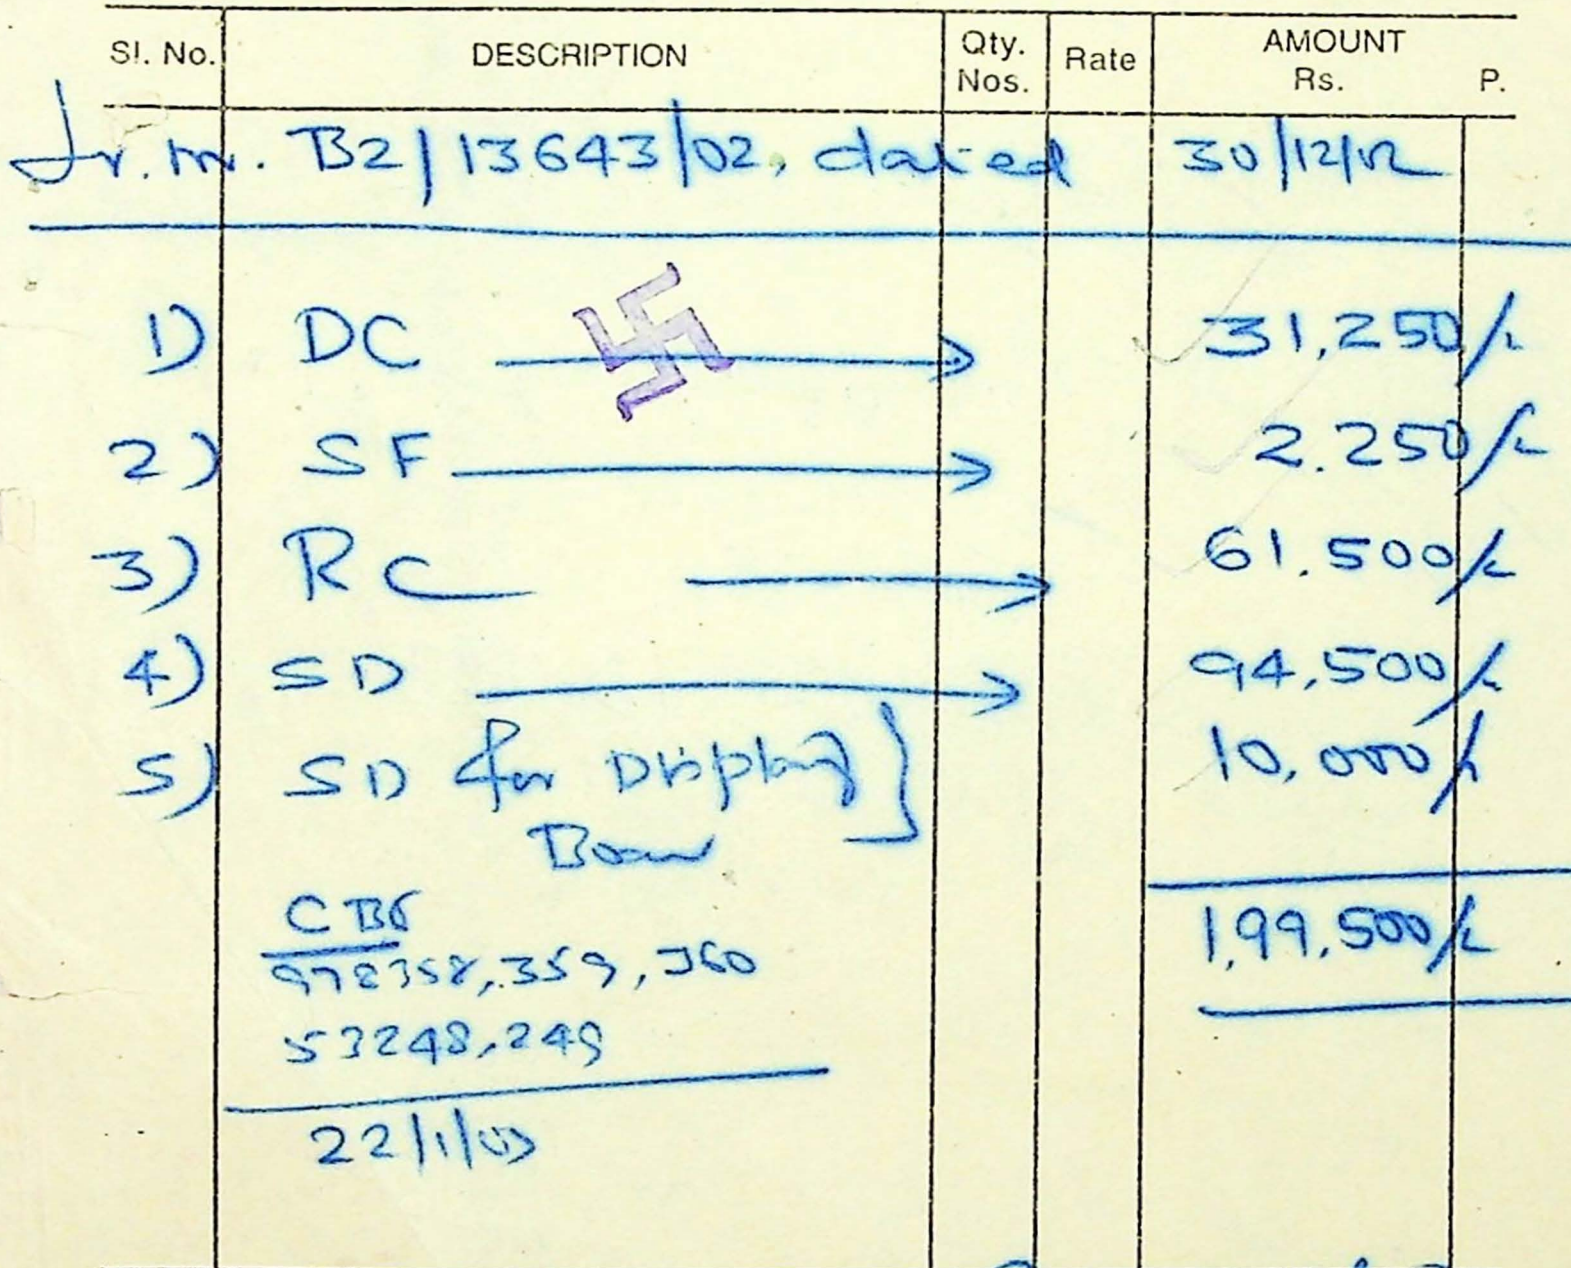 Sl. No. DESCRIPTION Qty. Nos. Rate AMOUNT Rs. P.
Lr. nr. B2/13643/02, dated 30/12/02
1) DC → 31,250/-
2) SF → 2.250/-
3) RC → 61.500/-
4) SD → 94,500/-
5) SD for Display } 10,000/-
Boar
1,99,500/-
978358, 359, 360
53248, 249
22/1/03